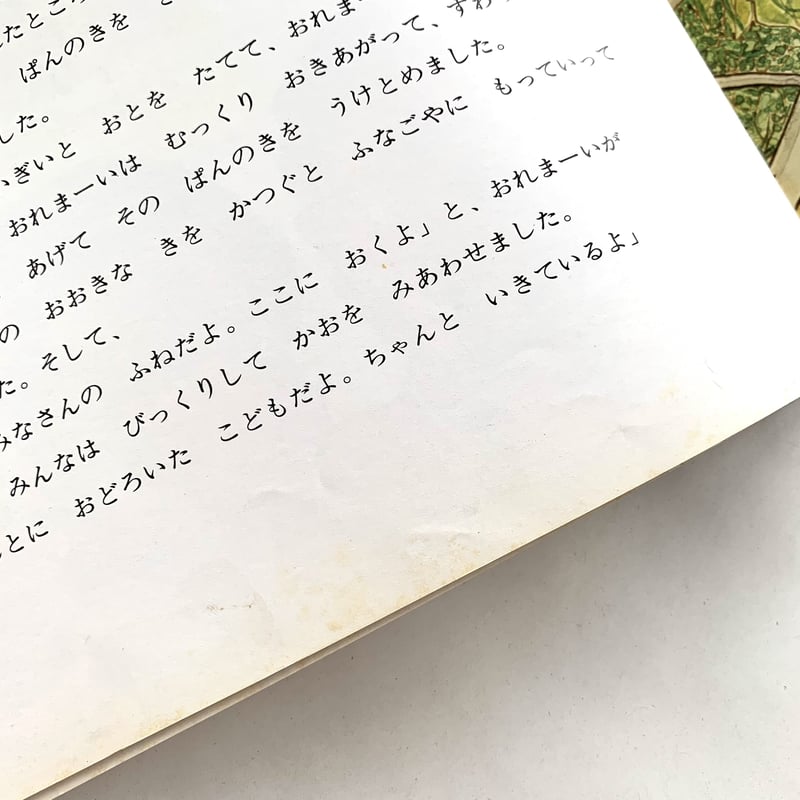 たところ
ぱんのきを
おとを たてて、おれまー
した。
ぎいと おきあがって、すわ
おれまーいは むっくり
あげて その ぱんのきを うけとめました。
の おおきな きを かつぐと ふなごやに もっていって
た。そして、
みなさんの ふねだよ。ここに おくよ」と、おれまーいが
みんなは びっくりして かおを みあわせました。
とに おどろいた こどもだよ。ちゃんと いきているよ」